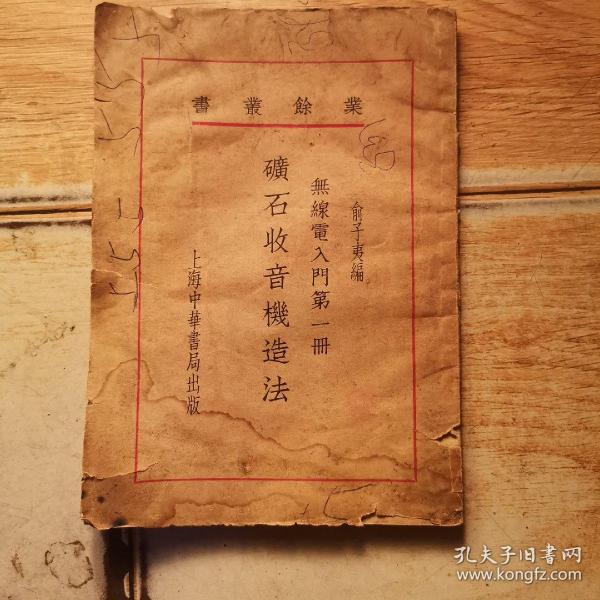 業餘叢書
俞子夷編
無線電入門第一冊
礦石收音機造法
上海中華書局出版
孔夫子旧书网
www.kongfz.com